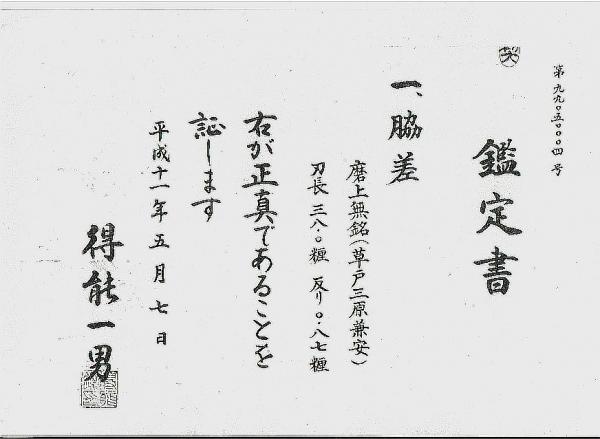 第九九〇五〇〇〇四号
鑑定書
一、脇差
磨上無銘(草戸三原兼安)
刃長 三八・〇糎 反り〇・八七糎
右が正真であることを
証します
平成十一年五月七日
得能一男